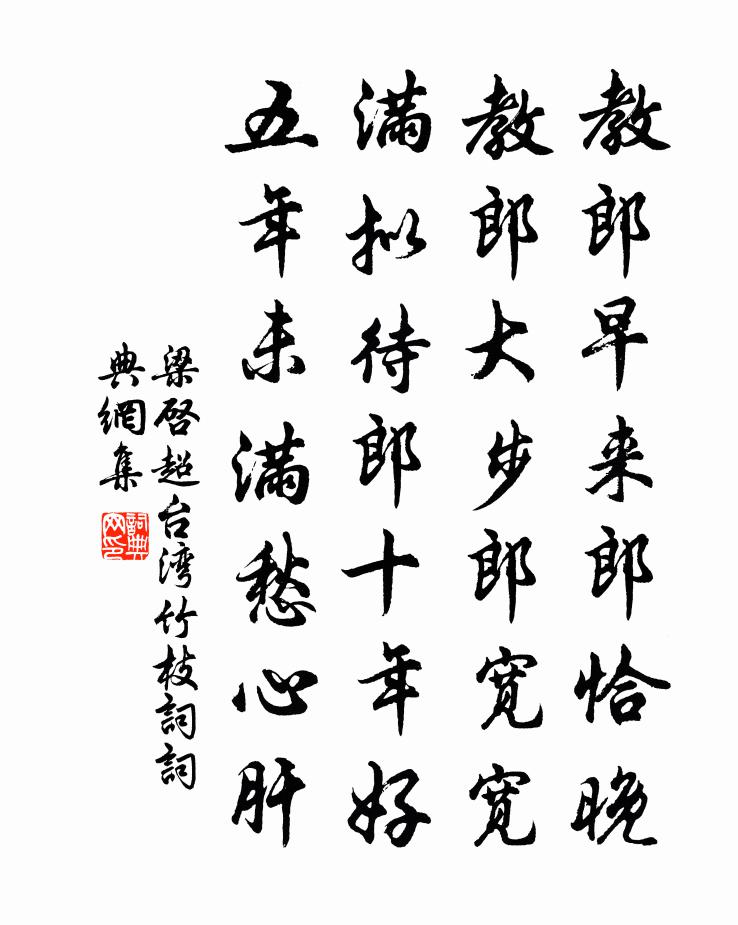 教郎早来郎恰晚
教郎大步郎宽宽
满拟待郎十年好
五年未满愁心肝
梁启超台湾竹枝詞詞
典網集
詞典網印